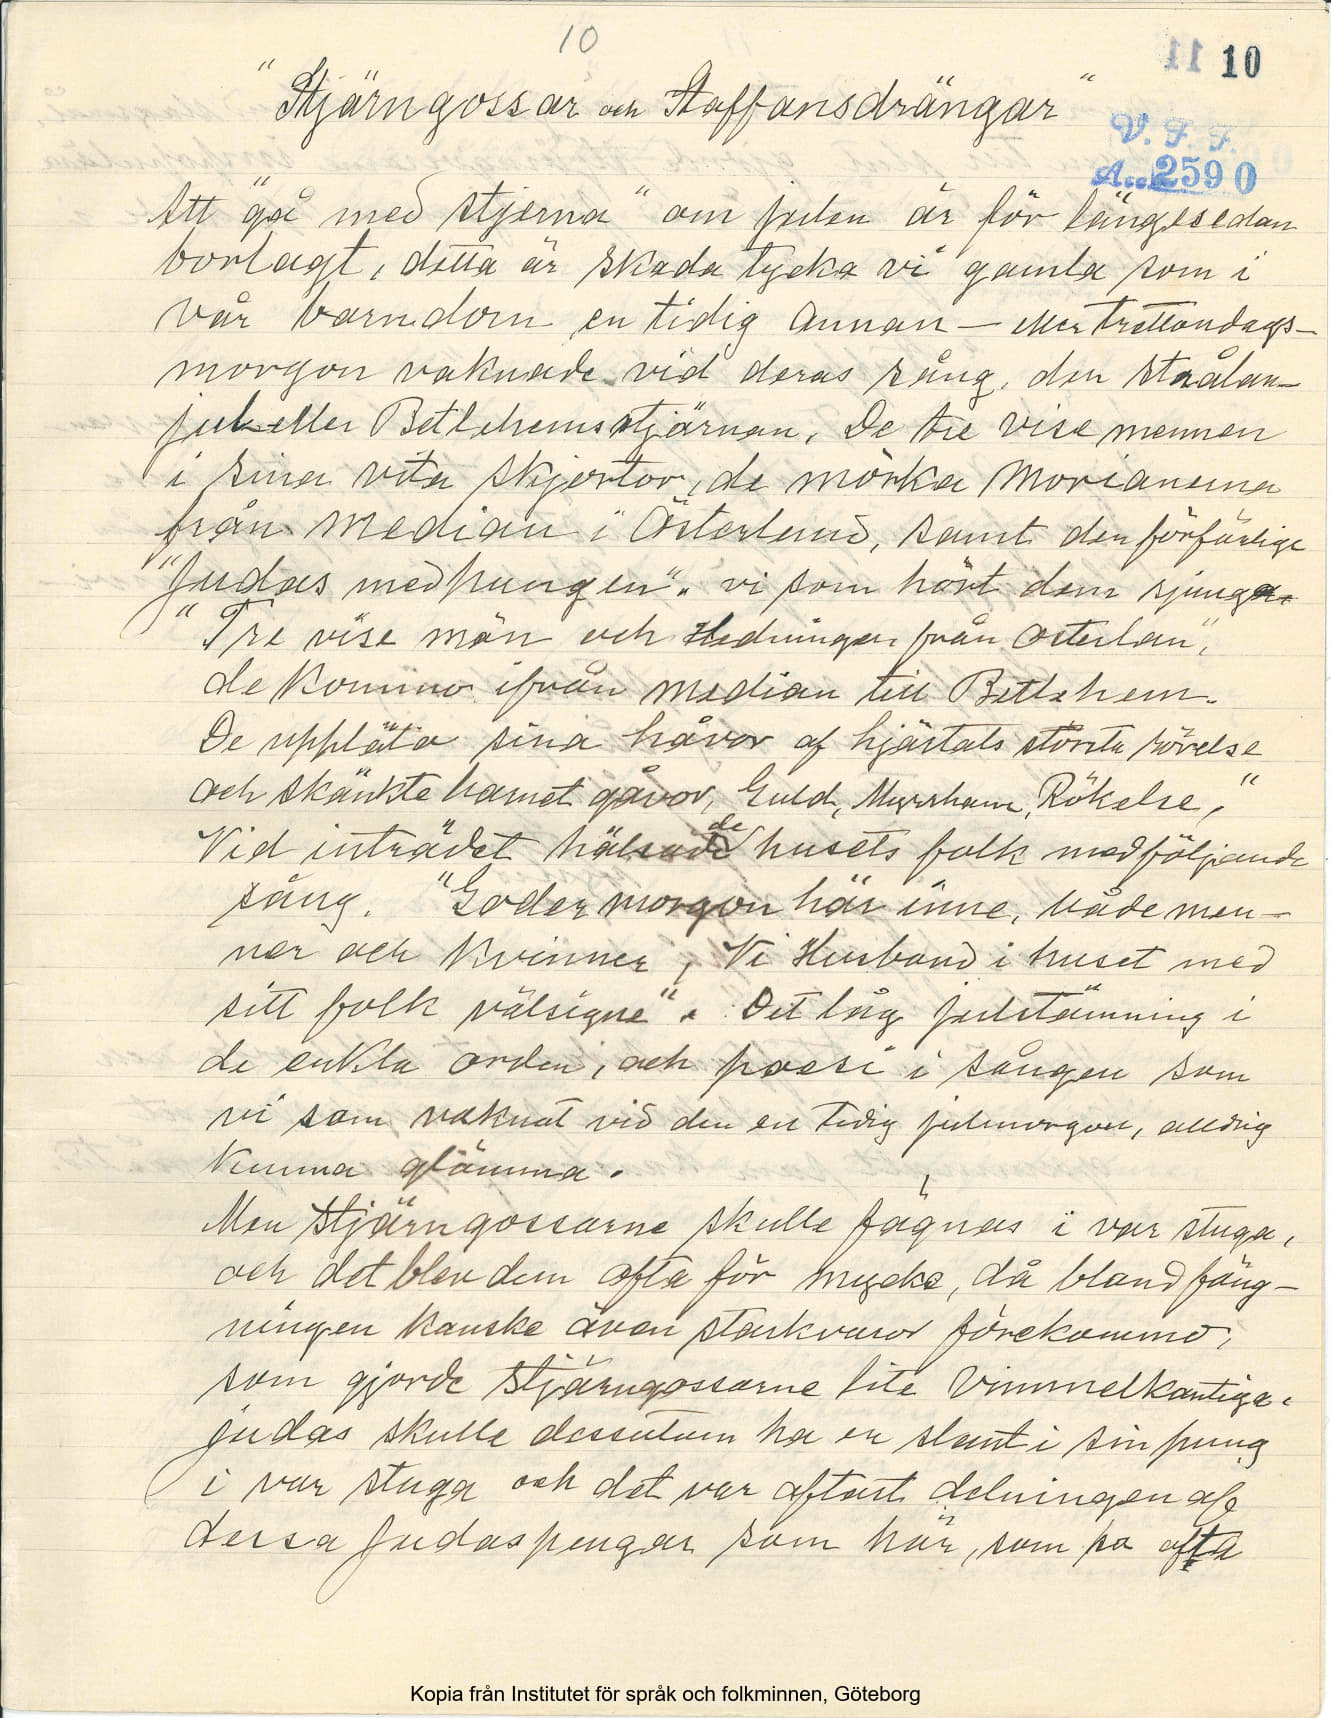 10
11 10
"Stjärngossar och Staffansdrängar"
V. F. F.
Acc. 2590
Att "gå med stjerna" om julen är för längesedan
bortlagt, detta är skada tycka vi gamla som i
vår barndom en tidig Annan- eller trettondags-
morgon vaknade vid deras sång, den strålan-
jul eller Betlehemsstjärnan, De tre vise mennen
i sina vita skjortor, de mörka Morianerna
från Median i Österland, samt den förfärlige
"Judas med pungen". vi som hört dem sjunga.
"Tre vise män och Hedningar från Osterlan",
de kommo ifrån Median till Betlehem.
De uppläto sina håvor af hjärtats största rörelse
och skänkte barnet gåvor, Guld, Myrrham, Rökelse,"
Vid inträdet hälsade husets folk med följande
sång. "Goder morgon här inne, både men-
ner och Kvinner, Vi Husbond i huset med
sitt folk välsigne". Det låg julstämning i
de enkla orden, och poesi i sången som
vi som vaknat vid den en tidig julmorgon, alldrig
kunna glömma.
Men stjärngossarne skulle fägnas i var stuga,
och det blev dem ofta för mycke, då bland fäng-
ningen kanske även starkvaror förekommo,
som gjorde stjärngossarne lite vimmelkantiga.
Judas skulle dessutom ha en slant i sin pung
i var stuga och det var oftast delningen af
dessa Judaspengar som här, som så ofta
Kopia från Institutet för språk och folkminnen, Göteborg